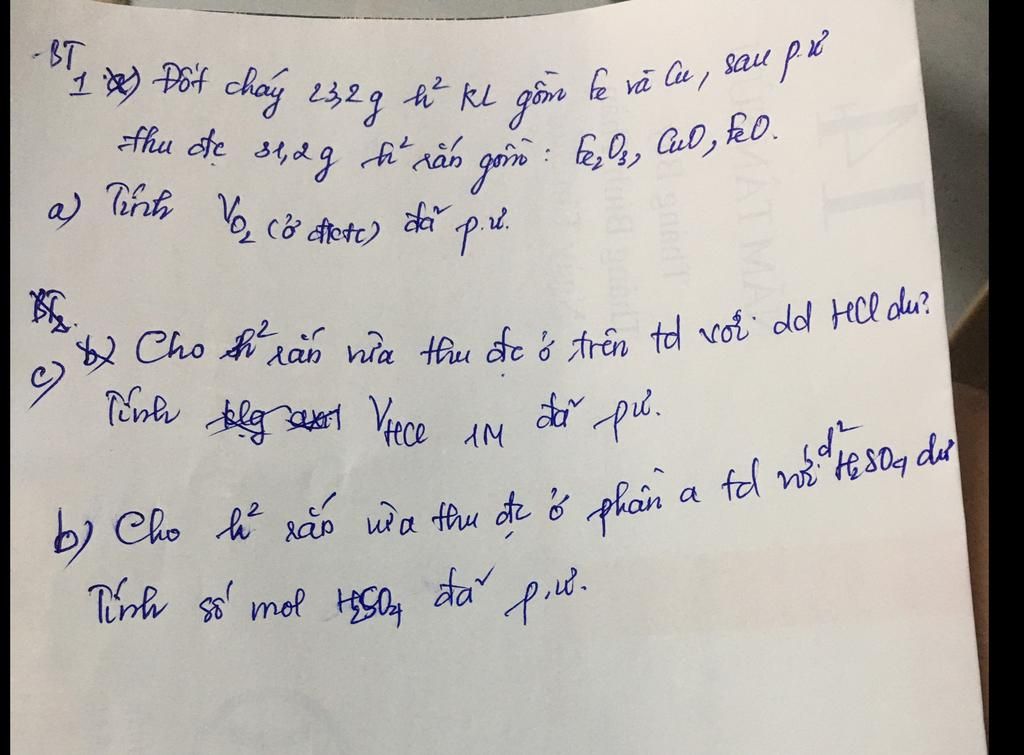 BT
1 Đốt cháy 23,2g h² KL gồm Fe và Cu, sau p.ư
thu đc 31,2g h² rắn gồm: Fe₂O₃, CuO, FeO.
a) Tính V O₂ (ở đktc) đã p.ư.
c) Cho h² rắn vừa thu đc ở trên td với dd HCl dư?
Tính V HCl 1M đã pư.
b) Cho h² rắn vừa thu đc ở phần a td với d² H₂SO₄ dư
Tính số mol H₂SO₄ đã p.ư.